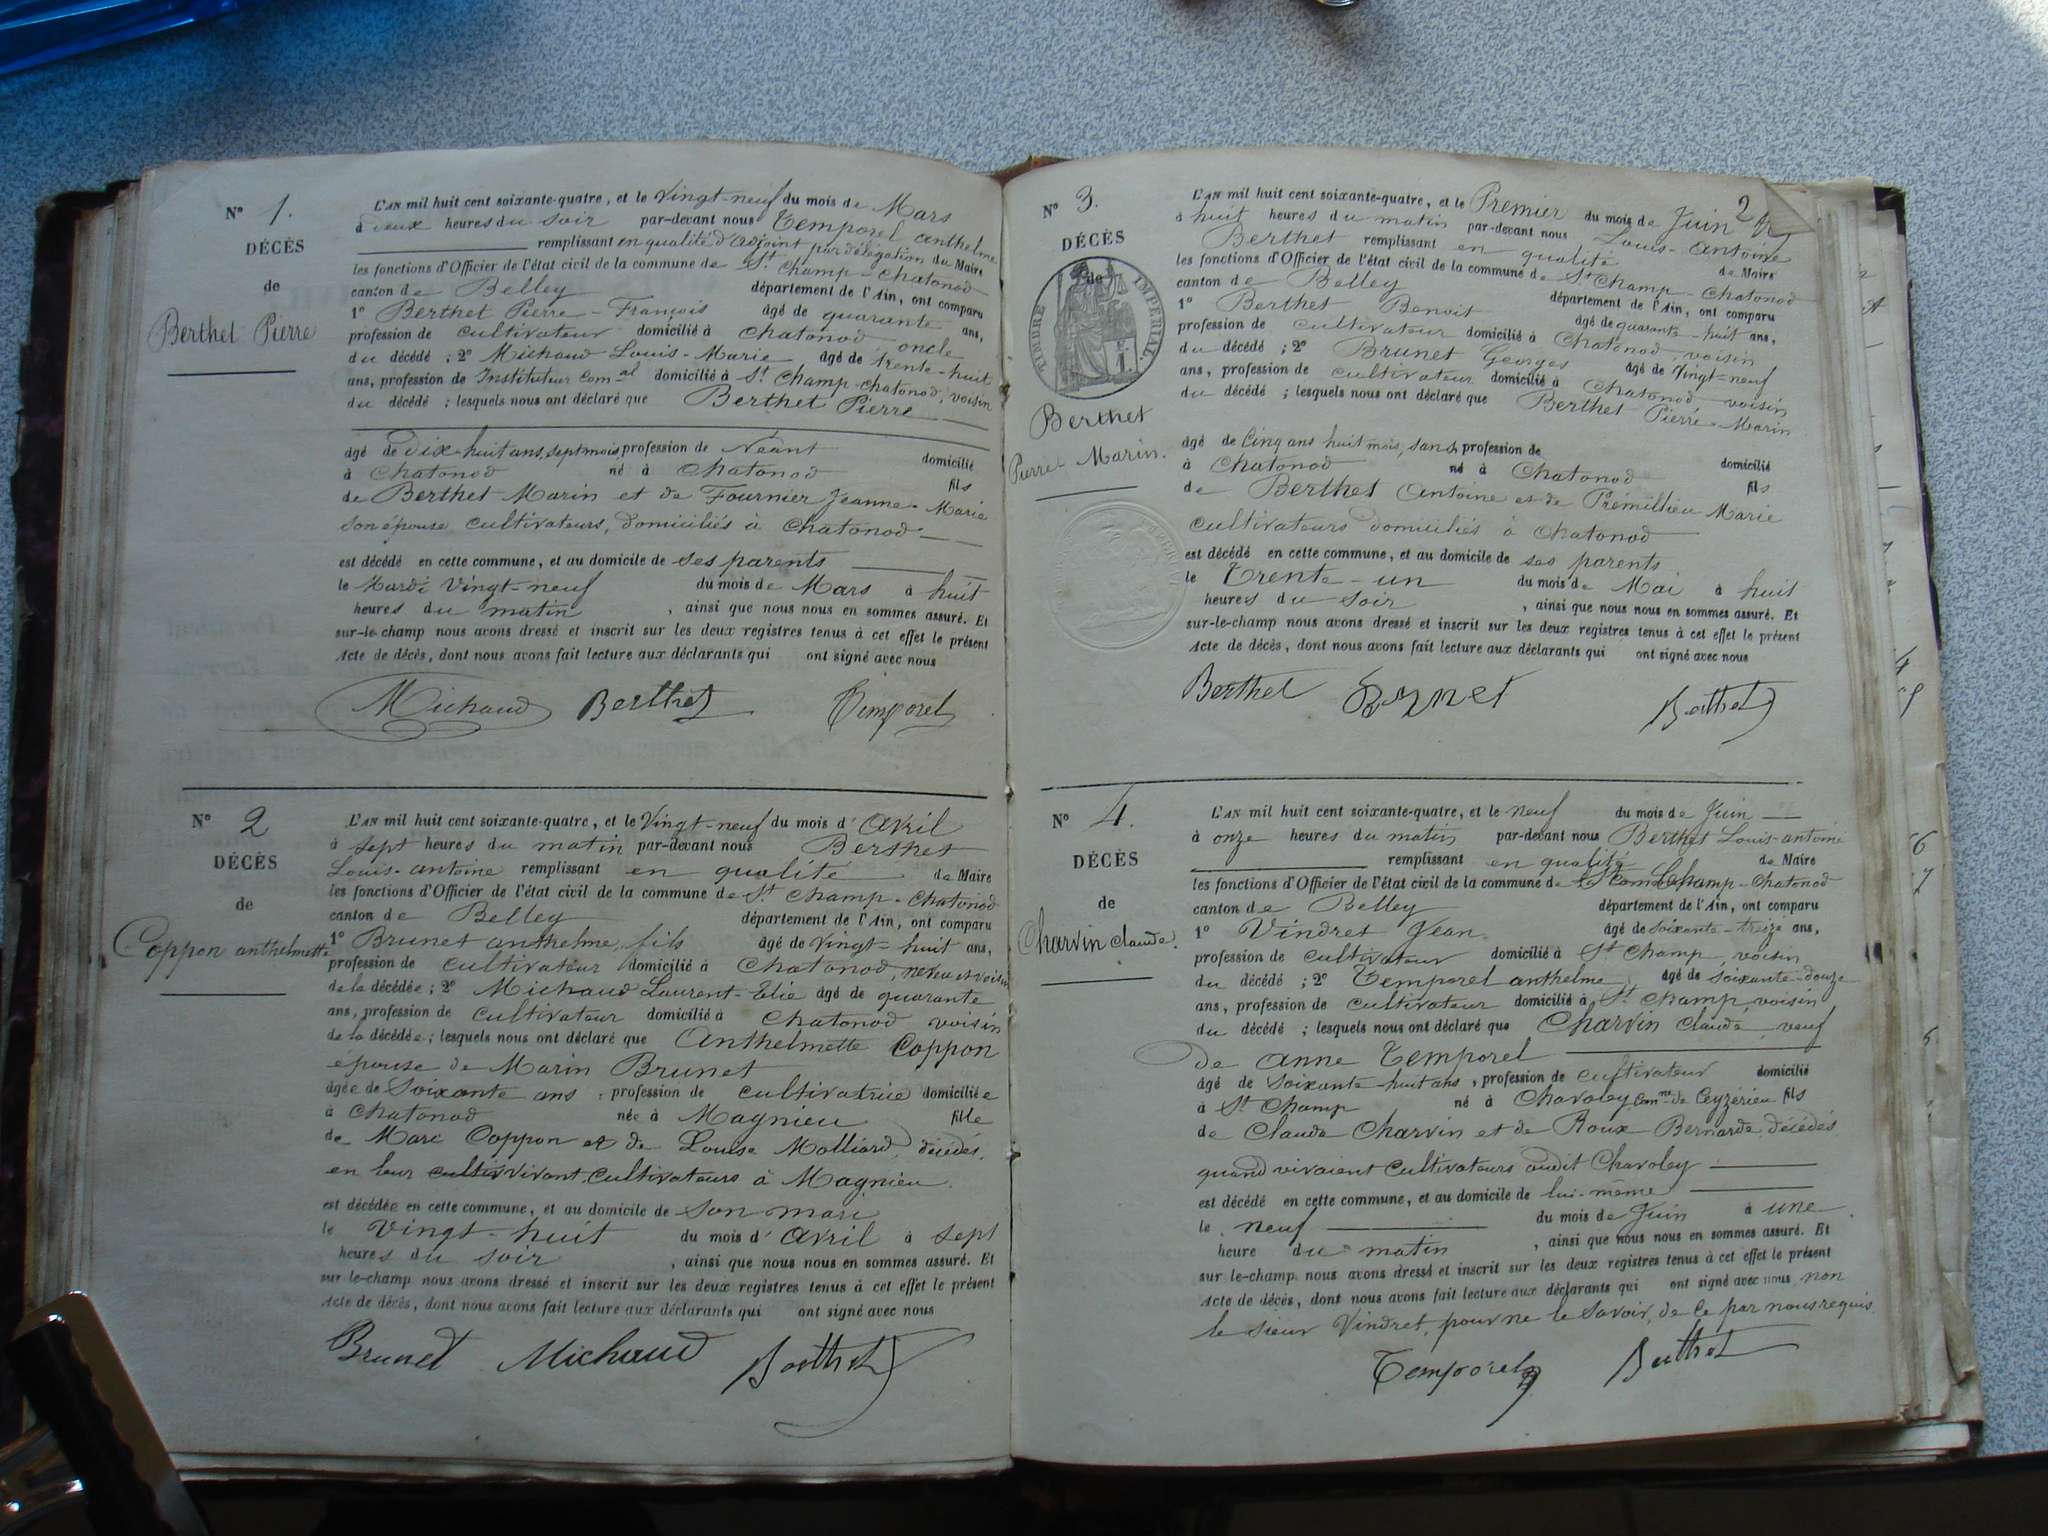 N° 1.
DÉCÈS
de
Berthet Pierre
L'AN mil huit cent soixante-quatre, et le Vingt-neuf du mois de Mars
à deux heures du soir par-devant nous Temporel anthelme
remplissant en qualité d'adjoint par délégation du Maire
les fonctions d'Officier de l'état civil de la commune de St Champ-Chatonod
canton de Belley département de l'Ain, ont comparu
1° Berthet Pierre-François âgé de quarante ans,
profession de cultivateur domicilié à Chatonod oncle
du décédé ; 2° Michaud Louis-Marie âgé de trente-huit
ans, profession de Instituteur Comal domicilié à St Champ-Chatonod, voisin
du décédé ; lesquels nous ont déclaré que Berthet Pierre
âgé de Dix-huit ans, sept mois profession de Néant domicilié
à Chatonod né à Chatonod fils
de Berthet Marin et de Fournier Jeanne-Marie
son épouse cultivateurs, domiciliés à Chatonod
est décédé en cette commune, et au domicile de ses parents
le Mardi Vingt-neuf du mois de Mars à huit
heures du matin , ainsi que nous nous en sommes assuré. Et
sur-le-champ nous avons dressé et inscrit sur les deux registres tenus à cet effet le présent
Acte de décès, dont nous avons fait lecture aux déclarants qui ont signé avec nous
Michaud Berthet Temporel
N° 2
DÉCÈS
de
Coppon anthelmette
L'AN mil huit cent soixante-quatre, et le Vingt-neuf du mois d'Avril
à sept heures du matin par-devant nous Berthet
Louis-antoine remplissant en qualité de Maire
les fonctions d'Officier de l'état civil de la commune de St Champ-Chatonod
canton de Belley département de l'Ain, ont comparu
1° Brunet anthelme, fils âgé de vingt-huit ans,
profession de cultivateur domicilié à Chatonod, neveu et voisin
de la décédée ; 2° Michaud Laurent-Elie âgé de quarante
ans, profession de cultivateur domicilié à Chatonod voisin
de la décédée ; lesquels nous ont déclaré que Anthelmette Coppon
épouse de Marin Brunet
âgée de Soixante ans , profession de cultivatrice domiciliée
à Chatonod née à Magnieu fille
de Marc Coppon et de Louise Molliard, décédés,
en leur cultiv vivant cultivateurs à Magnieu.
est décédée en cette commune, et au domicile de son mari
le vingt-huit du mois d'Avril à sept
heures du soir , ainsi que nous nous en sommes assuré. Et
sur le-champ nous avons dressé et inscrit sur les deux registres tenus à cet effet le présent
Acte de décès, dont nous avons fait lecture aux déclarants qui ont signé avec nous
Brunet Michaud Berthet
2
N° 3.
DÉCÈS
de
TIMBRE IMPÉRIAL.
Berthet
Pierre Marin.
L'AN mil huit cent soixante-quatre, et le Premier du mois de Juin
à huit heures du matin par-devant nous Louis-Antoine
Berthet remplissant en qualité de Maire
les fonctions d'Officier de l'état civil de la commune de St Champ-Chatonod
canton de Belley département de l'Ain, ont comparu
1° Berthet Benoit âgé de quarante-huit ans,
profession de cultivateur domicilié à Chatonod, voisin
du décédé ; 2° Brunet Georges âgé de Vingt-neuf
ans, profession de cultivateur domicilié à Chatonod voisin
du décédé ; lesquels nous ont déclaré que Berthet Pierre-Marin
âgé de Cinq ans huit mois, sans profession de domicilié
à Chatonod né à Chatonod fils
de Berthet Antoine et de Prémillieu Marie
cultivateurs domiciliés à Chatonod
est décédé en cette commune, et au domicile de ses parents
le Trente-un du mois de Mai à huit
heures du soir , ainsi que nous nous en sommes assuré. Et
sur-le-champ nous avons dressé et inscrit sur les deux registres tenus à cet effet le présent
Acte de décès, dont nous avons fait lecture aux déclarants qui ont signé avec nous
Berthet Brunet Berthet
N° 4.
DÉCÈS
de
Charvin Claude.
L'AN mil huit cent soixante-quatre, et le neuf du mois de Juin
à onze heures du matin par-devant nous Berthet Louis-antoine
remplissant en qualité de Maire
les fonctions d'Officier de l'état civil de la commune de St Champ-Chatonod
canton de Belley département de l'Ain, ont comparu
1° Vindret Jean âgé de soixante-treize ans,
profession de cultivateur domicilié à St Champ, voisin
du décédé ; 2° Temporel anthelme âgé de soixante-douze
ans, profession de cultivateur domicilié à St Champ, voisin
du décédé ; lesquels nous ont déclaré que Charvin Claude, veuf
de anne Temporel
âgé de soixante-huit ans , profession de cultivateur domicilié
à St Champ né à Chavoley Comne de Ceyzérieu fils
de Claude Charvin et de Roux Bernarde, décédés,
quand vivaient cultivateurs audit Chavoley
est décédé en cette commune, et au domicile de lui-même
le neuf du mois de Juin à une
heure du matin , ainsi que nous nous en sommes assuré. Et
sur le-champ nous avons dressé et inscrit sur les deux registres tenus à cet effet le présent
Acte de décès, dont nous avons fait lecture aux déclarants qui ont signé avec nous non
le sieur Vindret, pour ne le savoir, de ce par nous requis.
Temporel Berthet